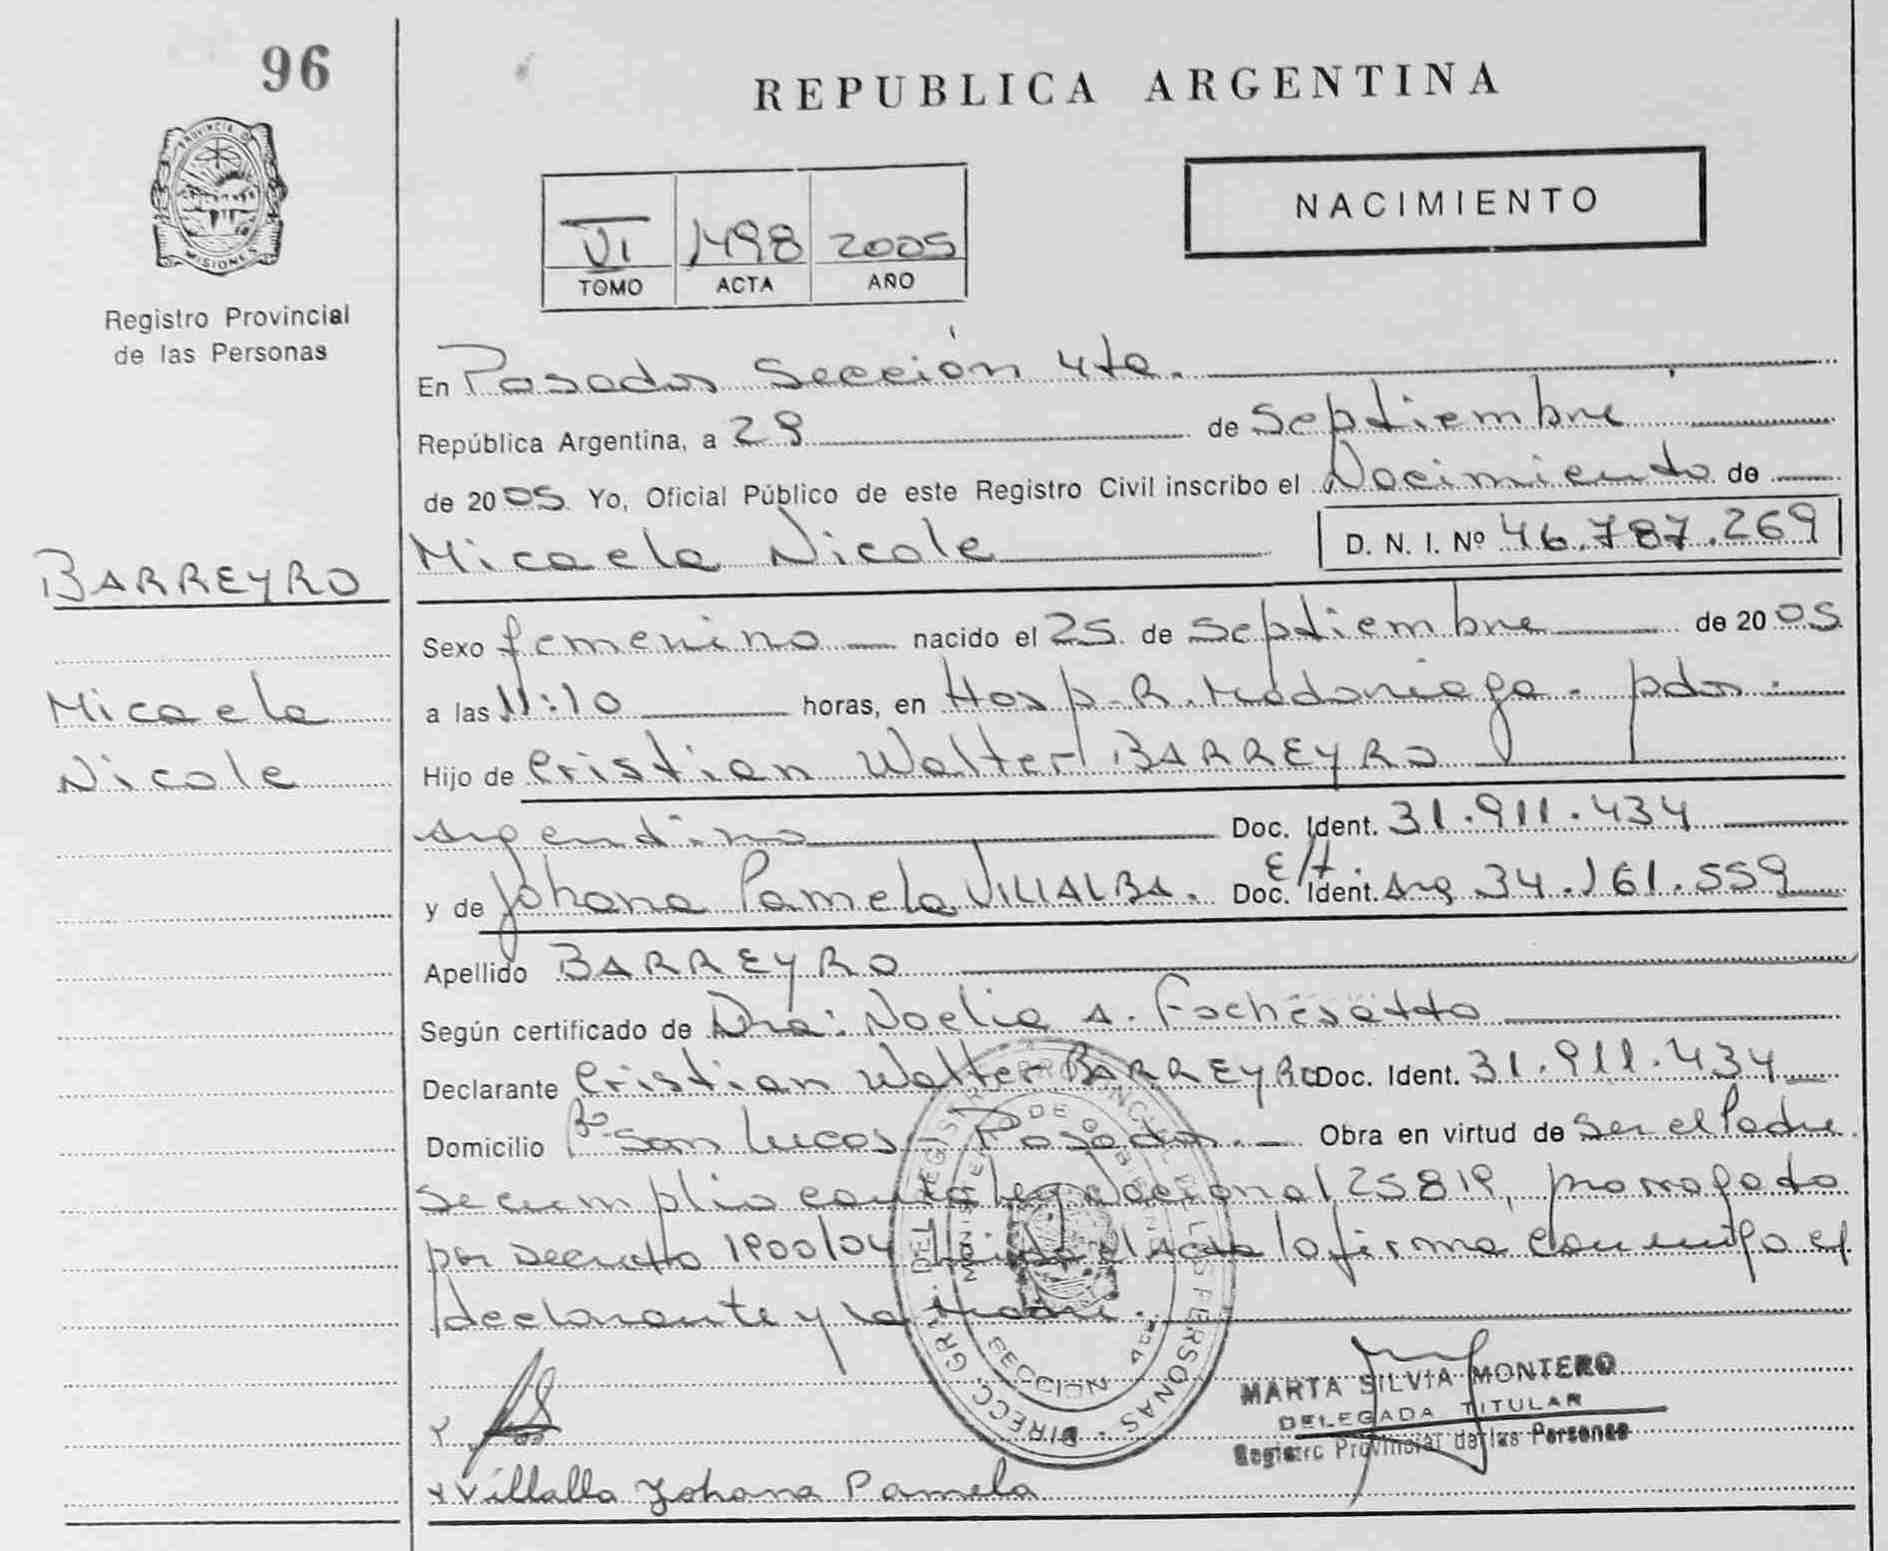 96
REPUBLICA ARGENTINA
PROVINCIA DE
MISIONES
Registro Provincial
de las Personas
NACIMIENTO
VI 1498 2005
TOMO ACTA AÑO
En Posadas Sección 4ta.
República Argentina, a 29 de Septiembre
de 2005 Yo, Oficial Público de este Registro Civil inscribo el Nacimiento de
Micaela Nicole D. N. I. Nº 46.787.269
BARREYRO
Micaela
Nicole
Sexo femenino nacido el 25 de Septiembre de 2005
a las 11:10 horas, en Hosp. R. Madariaga - pdas.
Hijo de Cristian Walter BARREYRO
Argentino Doc. Ident. 31.911.434
y de Johana Pamela VILLALBA. Doc. Ident. Arg 34.161.559
E/t.
Apellido BARREYRO
Según certificado de Dra: Noelia A. Fochesatto
Declarante Cristian Walter BARREYRO Doc. Ident. 31.911.434
Domicilio Bº San Lucas - Posadas. Obra en virtud de Ser el Padre
se cumplio con la Ley Nacional 25819, prorrogado
por Decreto 1900/04 Leida el Acta la firma conmigo el
declarante y la Madre.
DIRECC. GRAL. DEL REGISTRO PROVINCIAL DE LAS PERSONAS
SECCION
MARTA SILVIA MONTERO
DELEGADA TITULAR
Registro Provincial de las Personas
x
x Villalba Johana Pamela